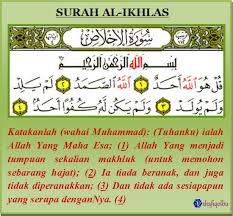 SURAH AL-IKHLAS
سُورَةُ الْإِخْلَاصِ
بِسْمِ اللَّهِ الرَّحْمَٰنِ الرَّحِيمِ
قُلْ هُوَ اللَّهُ أَحَدٌ ١ اللَّهُ الصَّمَدُ ٢ لَمْ يَلِدْ
وَلَمْ يُولَدْ ٣ وَلَمْ يَكُن لَّهُ كُفُوًا أَحَدٌ ٤
Katakanlah (wahai Muhammad): (Tuhanku) ialah
Allah Yang Maha Esa; (1) Allah Yang menjadi
tumpuan sekalian makhluk (untuk memohon
sebarang hajat); (2) Ia tiada beranak, dan juga
tidak diperanakkan; (3) Dan tidak ada sesiapapun
yang serupa denganNya. (4)